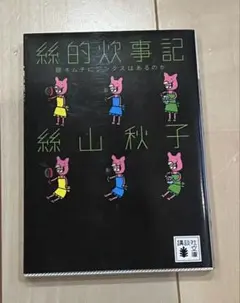 絲的炊事記
豚キムチにジンクスはあるのか
絲山秋子
講談社
文庫